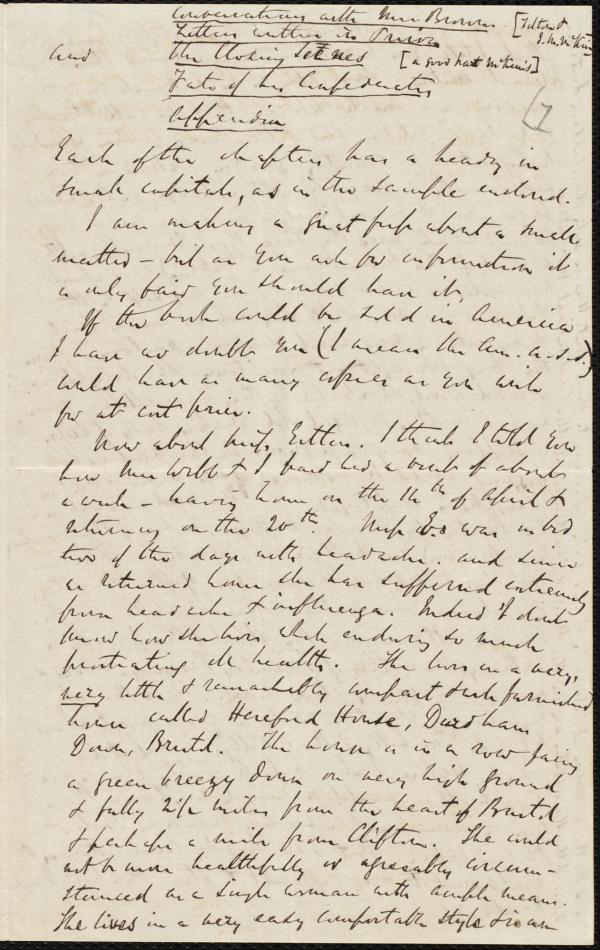 Conversations with Mrs Brown. [Tilton &
Letters written in Prison J. M. McKim
and the Closing Scenes [a good part McKim's]
Fate of his Confederates
Appendix
7
Each of the chapters has a heading in
small capitals, as in the sample enclosed.
I am making a great fuss about a small
matter – but as you ask for information it
is only fair you should have it.
If the book could be sold in America
I have no doubt you (I mean the Am. A. S. S.)
could have as many copies as you wish
for at cost price.
Now about Miss Estlin. I think I told you
how Mrs Webb & I paid her a visit of about
a week – leaving home on the 14th of April &
returning on the 20th. Miss E. was in bed
two of the days with headache, and since
we returned home she has suffered extremely
from headache & influenza. Indeed I dont
know how she lives while enduring so much
prostrating ill health. She lives in a very,
very little & remarkably compact & well furnished
house called Hereford House, Durdham
Down, Bristol. The house is in a row facing
a green breezy down on very high ground
& fully 2½ miles from the heart of Bristol
& perhaps a mile from Clifton. She could
not be more healthfully or agreeably circum-
stanced as a single woman with ample means.
She lives in a very easy comfortable style & is an